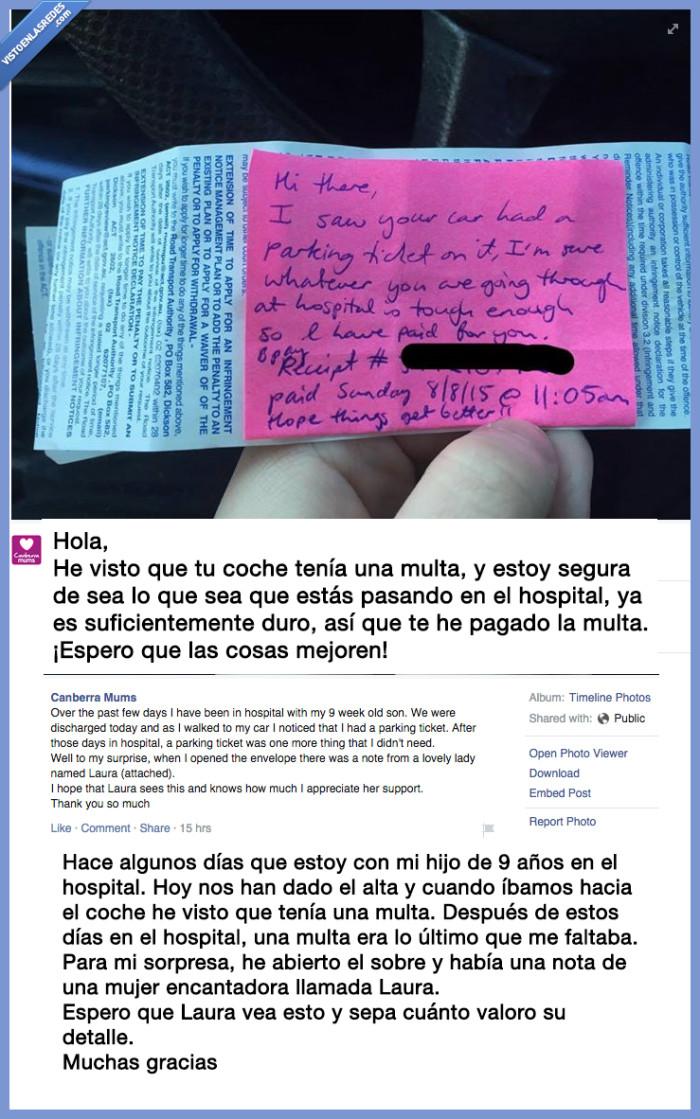 VISTOENLASREDES
.com
EXTENSION OF TIME TO APPLY FOR AN INFRINGEMENT
NOTICE MANAGEMENT PLAN OR TO ADD THE PENALTY TO AN
EXISTING PLAN OR TO APPLY FOR A WAIVER OF THE
PENALTY OR TO APPLY FOR WITHDRAWAL -
Hi there,
I saw your car had a
parking ticket on it, I'm sure
whatever you are going through
at hospital is tough enough
so I have paid for you.
Bpay
Reciept #
paid Sunday 8/8/15 @ 11:05am
Hope things get better!!
Canberra
mums
Hola,
He visto que tu coche tenía una multa, y estoy segura
de sea lo que sea que estás pasando en el hospital, ya
es suficientemente duro, así que te he pagado la multa.
¡Espero que las cosas mejoren!
Canberra Mums
Over the past few days I have been in hospital with my 9 week old son. We were
discharged today and as I walked to my car I noticed that I had a parking ticket. After
those days in hospital, a parking ticket was one more thing that I didn't need.
Well to my surprise, when I opened the envelope there was a note from a lovely lady
named Laura (attached).
I hope that Laura sees this and knows how much I appreciate her support.
Thank you so much
Like · Comment · Share · 15 hrs
Album: Timeline Photos
Shared with: Public
Open Photo Viewer
Download
Embed Post
Report Photo
Hace algunos días que estoy con mi hijo de 9 años en el
hospital. Hoy nos han dado el alta y cuando íbamos hacia
el coche he visto que tenía una multa. Después de estos
días en el hospital, una multa era lo último que me faltaba.
Para mi sorpresa, he abierto el sobre y había una nota de
una mujer encantadora llamada Laura.
Espero que Laura vea esto y sepa cuánto valoro su
detalle.
Muchas gracias